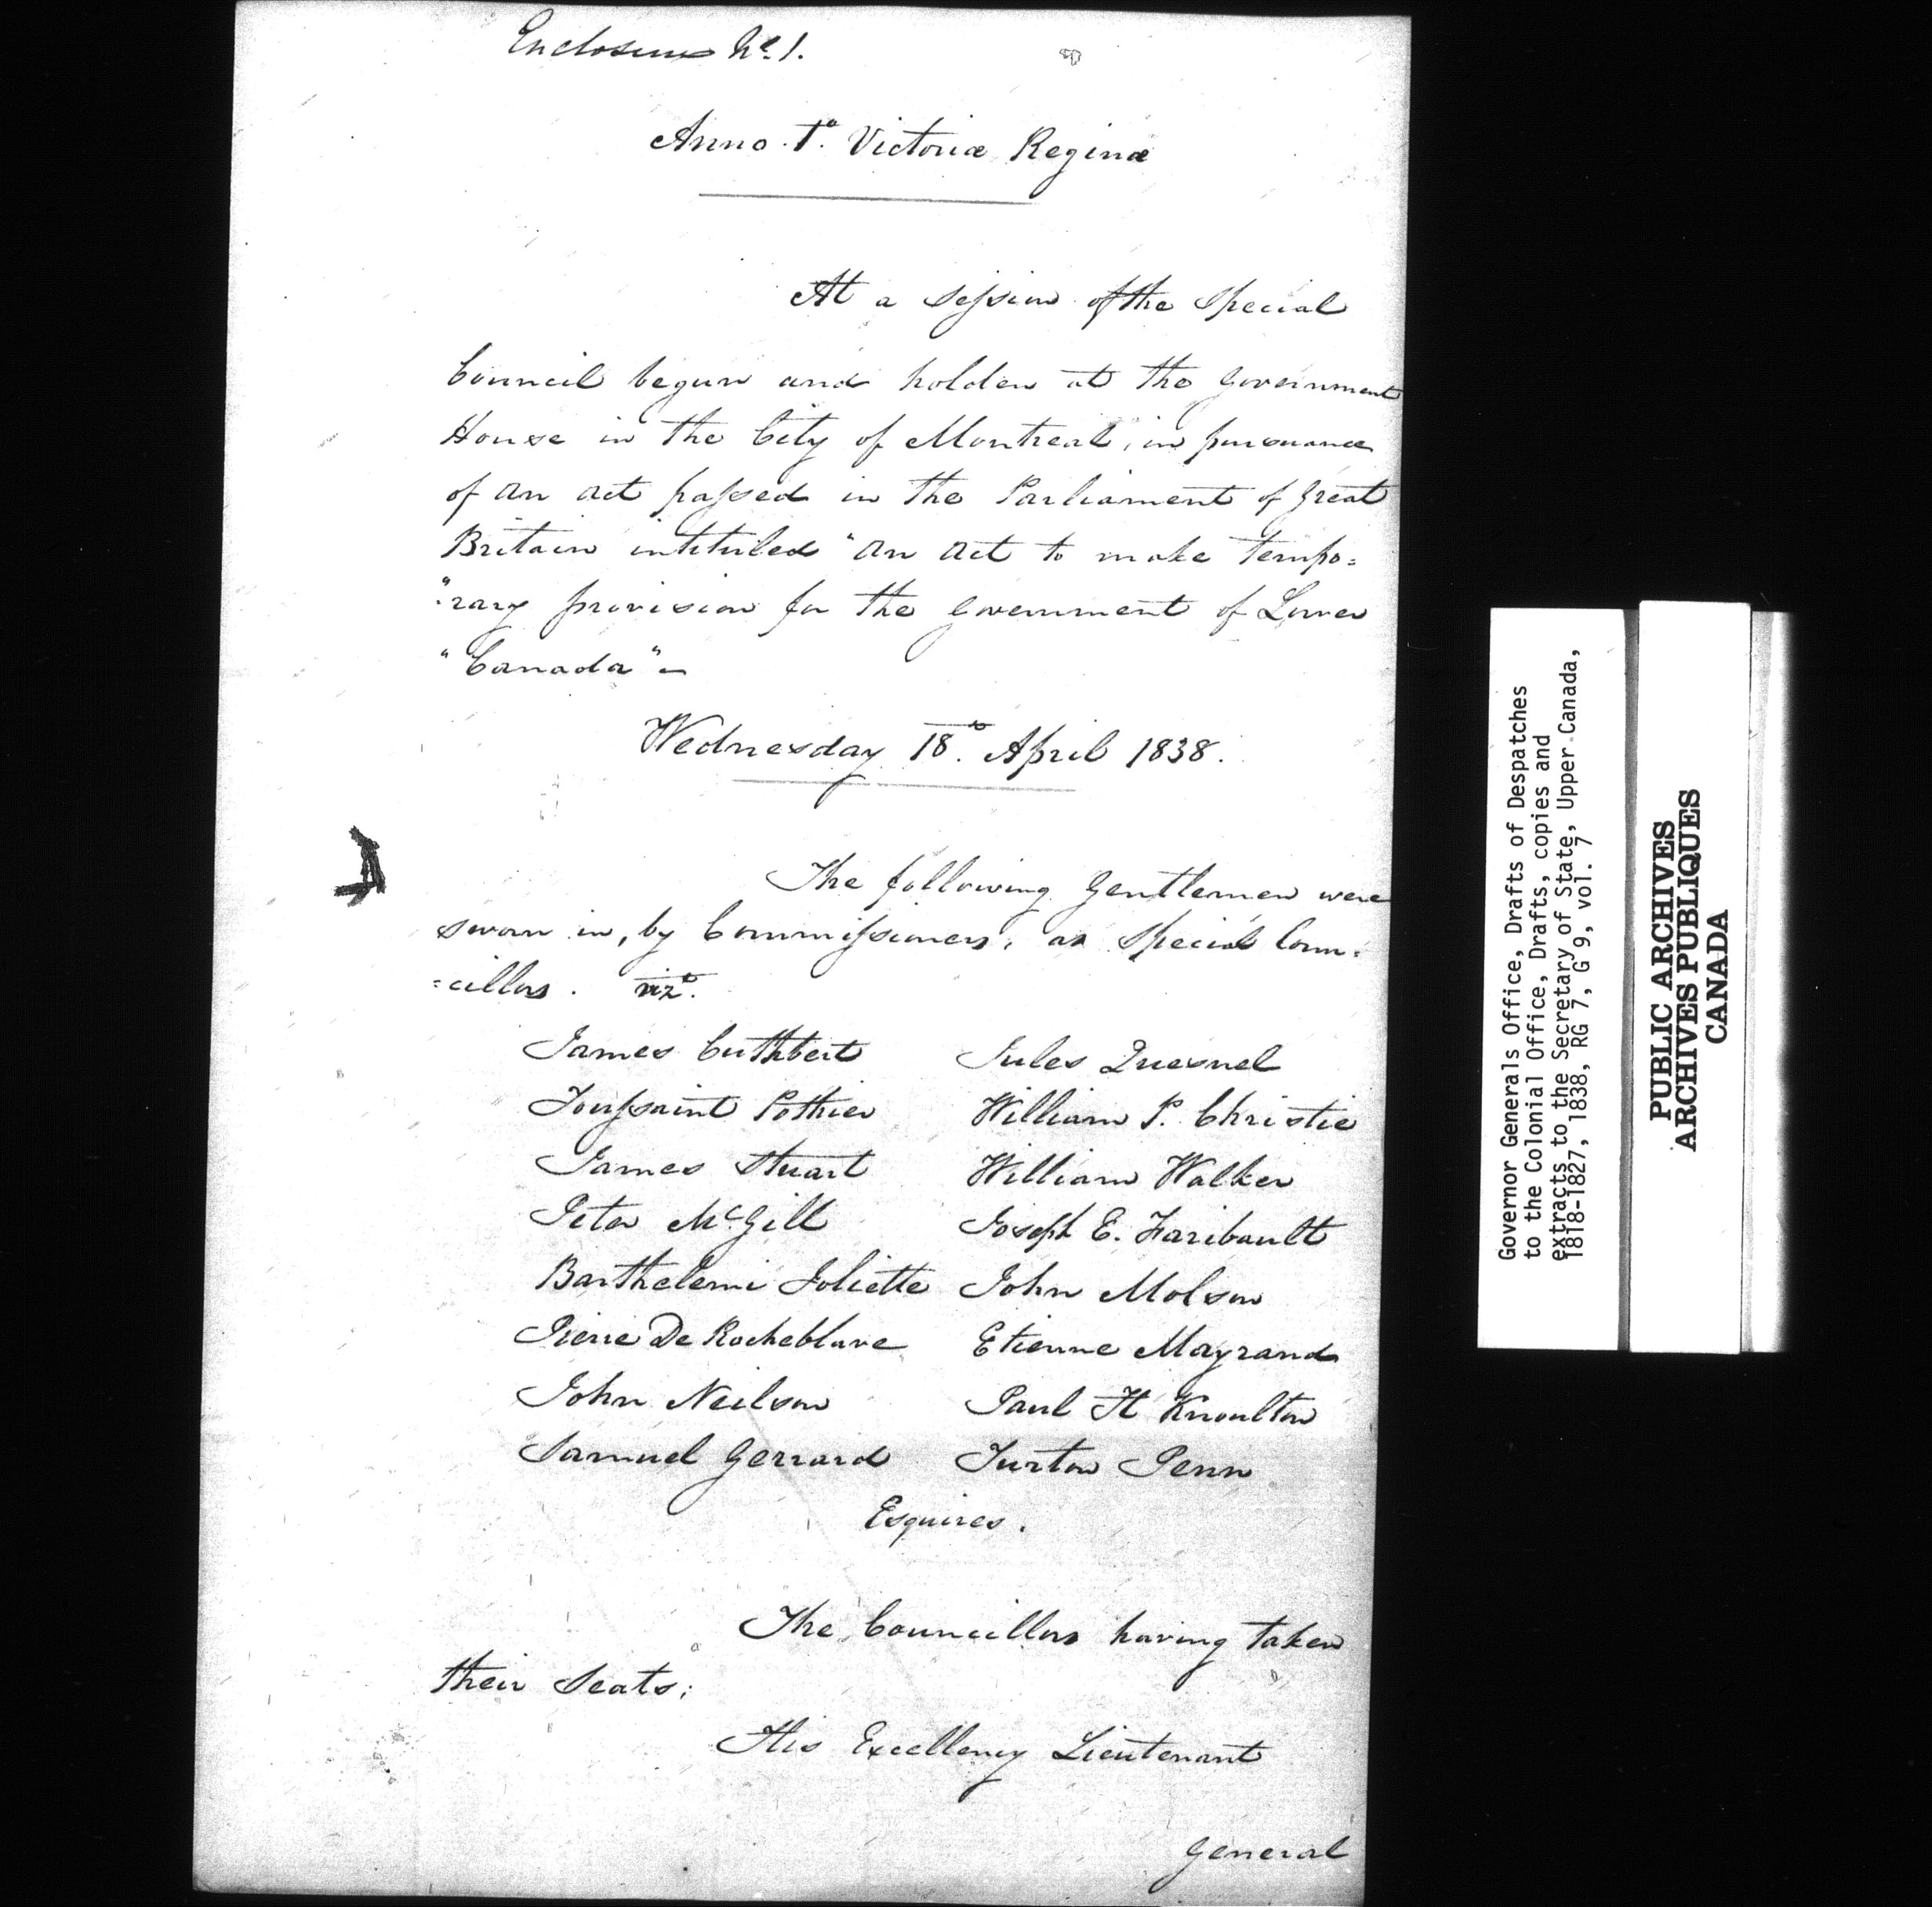 Enclosure No. 1.
Anno 1o. Victoriæ Reginæ
At a Session of the Special
Council begun and holden at the Government
House in the City of Montreal, in pursuance
of an act passed in the Parliament of Great
Britain intituled "An Act to make tempo=
"=rary provision for the Government of Lower
"Canada"—
Wednesday 18o. April 1838.
The following Gentlemen were
sworn in, by Commissioners, as Special Coun=
=cillors. vizt.
James Cuthbert Jules Quesnel
Toussaint Pothier William P. Christie
James Stuart William Walker
Peter McGill Joseph E. Faribault
Barthelemi Joliette John Molson
Pierre De Rocheblave Etienne Mayrand
John Neilson Paul H Knoulton
Samuel Gerrard Turton Penn
Esquires.
The Councillors having taken
their Seats;
His Excellency Lieutenant
General
Governor Generals Office, Drafts of Despatches
to the Colonial Office, Drafts, copies and
extracts to the Secretary of State, Upper Canada,
1818-1827, 1838, RG 7, G 9, vol. 7
PUBLIC ARCHIVES
ARCHIVES PUBLIQUES
CANADA